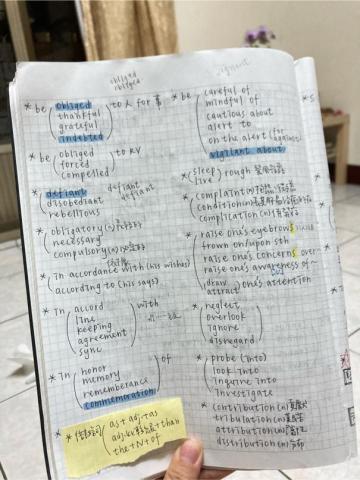 obliged
oblidged
* be
obliged
thankful
grateful
indebted
to 人 for 事
* be
obliged
forced
compelled
to RV
* defiant
disobediant
rebellious
defiant
defiant
* obligatory
necessary
compulsory (a)
* in accordance with (his wishes)
according to (his says)
* in
accord
line
keeping
agreement
sync
with
* in
honor
memory
rememberance
commemoration
of
as + adj + as
than
the + N + of
* be
careful of
mindful of
cautious about
alert to
on the alert (for
against)
vigilant about
* (sleep
live) rough
* complaint (n)
condition (n)
complication (n)
* raise one's eyebrows
frown on/upon sth
raise one's concerns over
raise one's awareness of ~
(draw
attract) one's attention
* neglect
overlook
ignore
disregard
* probe (into)
look into
inquire into
investigate
* contribution (n) 貢獻
tribulation (n)
attribution (n)
distribution (n) 分布